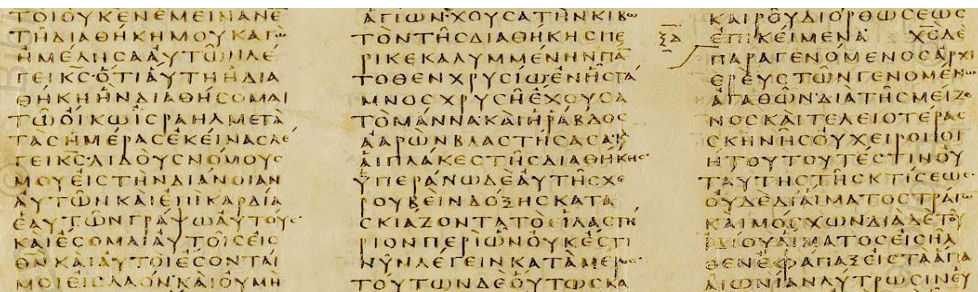 ΤΟΙΟΥΚΕΝΕΜΕΙΝΑΝΕ
ΤΗΔΙΑΘΗΚΗΜΟΥΚΑΓΩ
ΗΜΕΛΗϹΑΑΥΤΩΝΛΕ
ΓΕΙΚϹΟΤΙΑΥΤΗΗΔΙΑ
ΘΗΚΗΗΝΔΙΑΘΗϹΟΜΑΙ
ΤΩΟΙΚΩΙϹΡΑΗΛΜΕΤΑ
ΤΑϹΗΜΕΡΑϹΕΚΕΙΝΑϹΛΕ
ΓΕΙΚϹΔΙΔΟΥϹΝΟΜΟΥϹ
ΜΟΥΕΙϹΤΗΝΔΙΑΝΟΙΑΝ
ΑΥΤΩΝΚΑΙΕΠΙΚΑΡΔΙΑ
ΕΑΥΤΩΝΓΡΑΨΩΑΥΤΟΥϹ
ΚΑΙΕϹΟΜΑΙΑΥΤΟΙϹΕΙϹ
ΘΝΚΑΙΑΥΤΟΙΕϹΟΝΤΑΙ
ΜΟΙΕΙϹΛΑΟΝΚΑΙΟΥΜΗ
ΑΓΙΩΝΧΟΥϹΑΤΗΝΚΙΒΩ
ΤΟΝΤΗϹΔΙΑΘΗΚΗϹΠΕ
ΡΙΚΕΚΑΛΥΜΜΕΝΗΝΠΑ
ΤΟΘΕΝΧΡΥϹΙΩΕΝΗϹΤΑ
ΜΝΟϹΧΡΥϹΗΕΧΟΥϹΑ
ΤΟΜΑΝΝΑΚΑΙΗΡΑΒΔΟϹ
ΑΑΡΩΝΒΛΑϹΤΗϹΑϹΑΚ
ΑΙΠΛΑΚΕϹΤΗϹΔΙΑΘΗΚΗϹ
ΥΠΕΡΑΝΩΔΕΑΥΤΗϹΧΕ
ΡΟΥΒΕΙΝΔΟΞΗϹΚΑΤΑ
ϹΚΙΑΖΟΝΤΑΤΟΕΙΛΑϹΤΗ
ΡΙΟΝΠΕΡΙΩΝΟΥΚΕϹΤΙ
ΝΥΝΛΕΓΕΙΝΚΑΤΑΜΕΡΟϹ
ΤΟΥΤΩΝΔΕΟΥΤΩϹΚΑ
ΞΔ
ΚΑΙΡΟΥΔΙΟΡΘΩϹΕΩϹ
ΕΠΙΚΕΙΜΕΝΑ ΧϹΔΕ
ΠΑΡΑΓΕΝΟΜΕΝΟϹΑΡΧΙ
ΕΡΕΥϹΤΩΝΓΕΝΟΜΕΝΩ
ΑΓΑΘΩΝΔΙΑΤΗϹΜΕΙΖΟ
ΝΟϹΚΑΙΤΕΛΕΙΟΤΕΡΑϹ
ϹΚΗΝΗϹΟΥΧΕΙΡΟΠΟΙ
ΗΤΟΥΤΟΥΤΕϹΤΙΝΟΥ
ΤΑΥΤΗϹΤΗϹΚΤΙϹΕΩϹ
ΟΥΔΕΔΙΑΙΜΑΤΟϹΤΡΑΓΩ
ΚΑΙΜΟϹΧΩΝΔΙΑΔΕΤΟΥ
ΙΔΙΟΥΑΙΜΑΤΟϹΕΙϹΗΛ
ΘΕΝΕΦΑΠΑΞΕΙϹΤΑΑΓΙΑ
ΑΙΩΝΙΑΝΛΥΤΡΩϹΙΝΕΥ